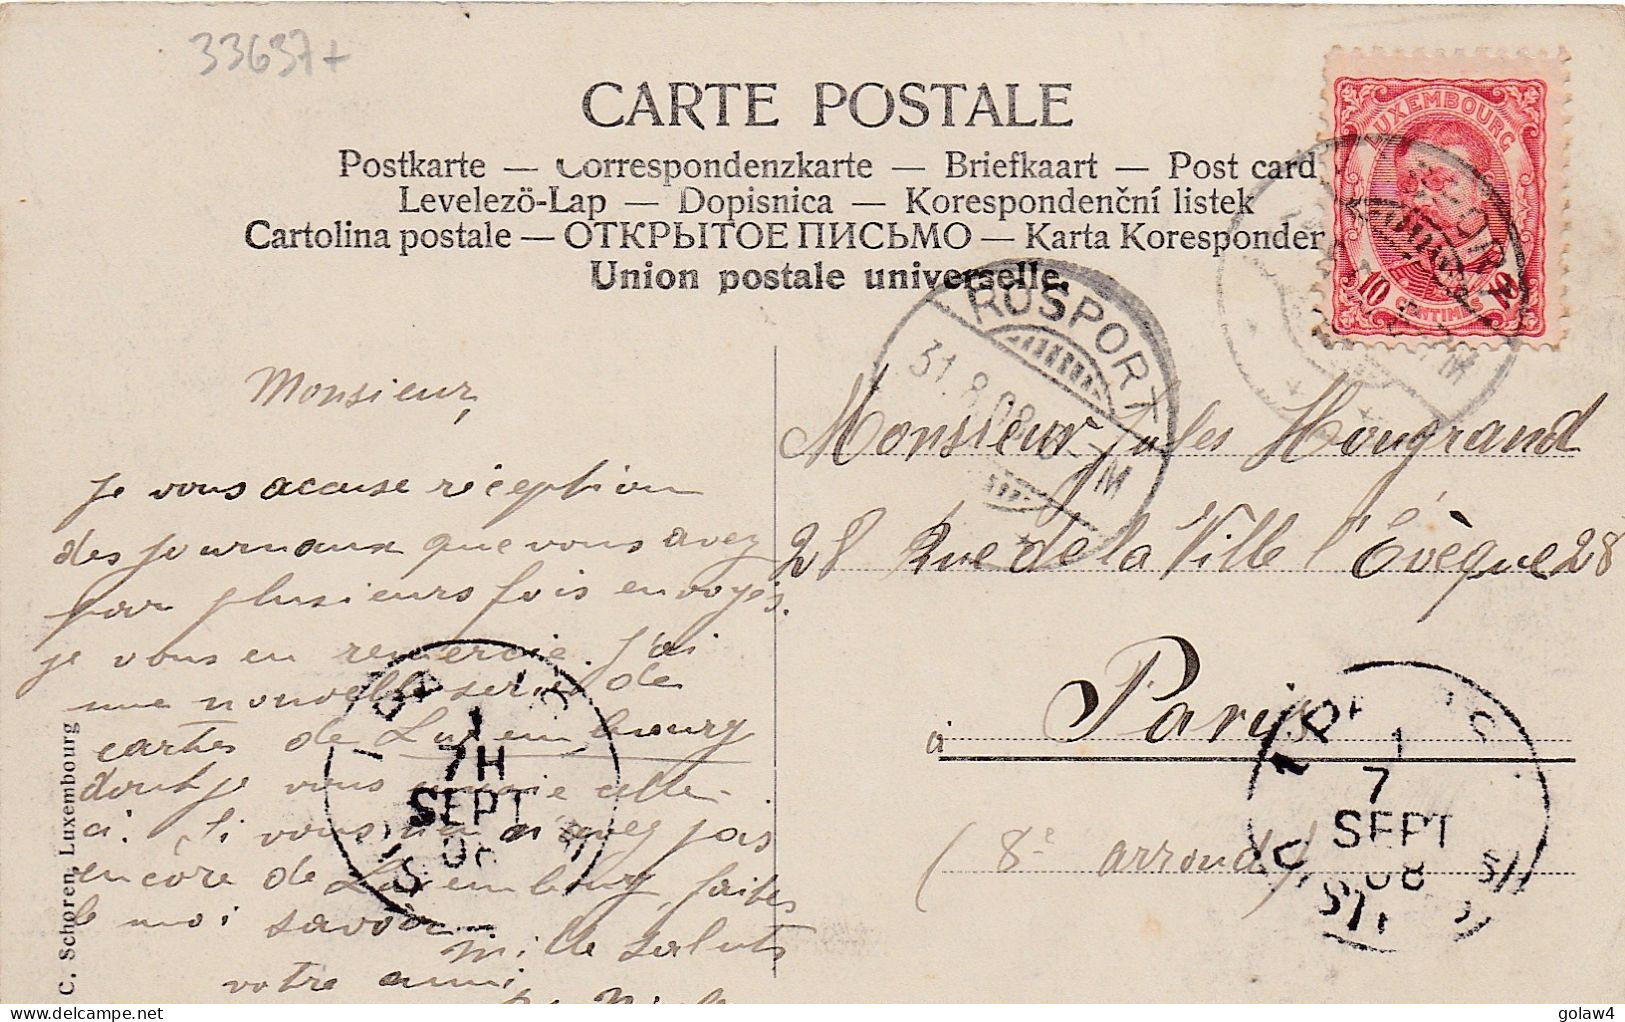 33637+
CARTE POSTALE
Postkarte — Correspondenzkarte — Briefkaart — Post card
Levelezö-Lap — Dopisnica — Korespondenční listek
Cartolina postale — ОТКРЫТОЕ ПИСЬМО — Karta Koresponden
Union postale universelle.
LUXEMBOURG
10 CENTIMES 10
ROSPORT
31.8.08
M
Monsieur,
Je vous accuse réception
des journaux que vous avez
par plusieurs fois envoyés.
je vous en remercie. J'ai
une nouvelle serie de
cartes de Luxembourg
dont je vous envoie celle-
ci. Si vous n'avez pas
encore de Luxembourg, faites
le moi savoir.
Mille saluts
votre ami
Monsieur Jules Hougrand
28 Rue de la Ville l'Evêque 28
à Paris
(8e arrond)
1
7H
SEPT
08
1
7
SEPT
08
C. Schoren, Luxembourg
delcampe.net
golaw4